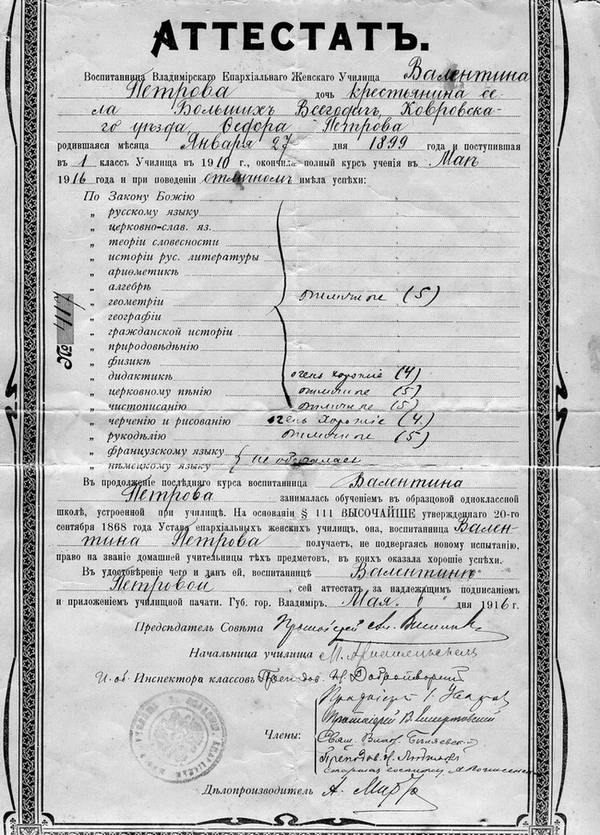 АТТЕСТАТЪ.
Воспитанница Владимірскаго Епархіальнаго Женскаго Училища Валентина
Петрова дочь крестьянина се-
ла Большихъ Всегодичъ, Ковровска-
го уѣзда Ѳедора Петрова
родившаяся мѣсяца Января 27 дня 1899 года и поступившая
въ 1 классъ Училища въ 1910 г., окончила полный курсъ ученія въ Маѣ
1916 года и при поведеніи отличномъ имѣла успѣхи:
По Закону Божію
„ русскому языку
„ церковно-слав. яз.
„ теоріи словесности
„ исторіи рус. литературы
„ ариѳметикѣ
„ алгебрѣ
„ геометріи отличные (5)
„ географіи
„ гражданской исторіи
„ природовѣдѣнію
„ физикѣ
„ дидактикѣ очень хорошіе (4)
„ церковному пѣнію отличные (5)
„ чистописанію отличные (5)
„ черченію и рисованію очень хорошіе (4.)
„ рукодѣлію отличные (5)
„ французскому языку
„ нѣмецкому языку не обучалась
№ 417
Въ продолженіе послѣдняго курса воспитанница Валентина
Петрова занималась обученіемъ въ образцовой одноклассной
школѣ, устроенной при училищѣ. На основаніи § 111 ВЫСОЧАЙШЕ утвержденнаго 20-го
сентября 1868 года Устава епархіальныхъ женскихъ училищъ, она, воспитанница Вален-
тина Петрова получаетъ, не подвергаясь новому испытанію,
право на званіе домашней учительницы тѣхъ предметовъ, въ коихъ оказала хорошіе успѣхи.
Въ удостовѣреніе чего и данъ ей, воспитанницѣ Валентинѣ
Петровой, сей аттестатъ за надлежащимъ подписаніемъ
и приложеніемъ училищной печати. Губ. гор. Владиміръ, Мая 6 дня 1916 г.
Предсѣдатель Совѣта Протоіерей
Начальница училища
И. об. Инспектора классовъ
Члены:
Протоіерей
Свящ.
Преподов.
Дѣлопроизводитель А.